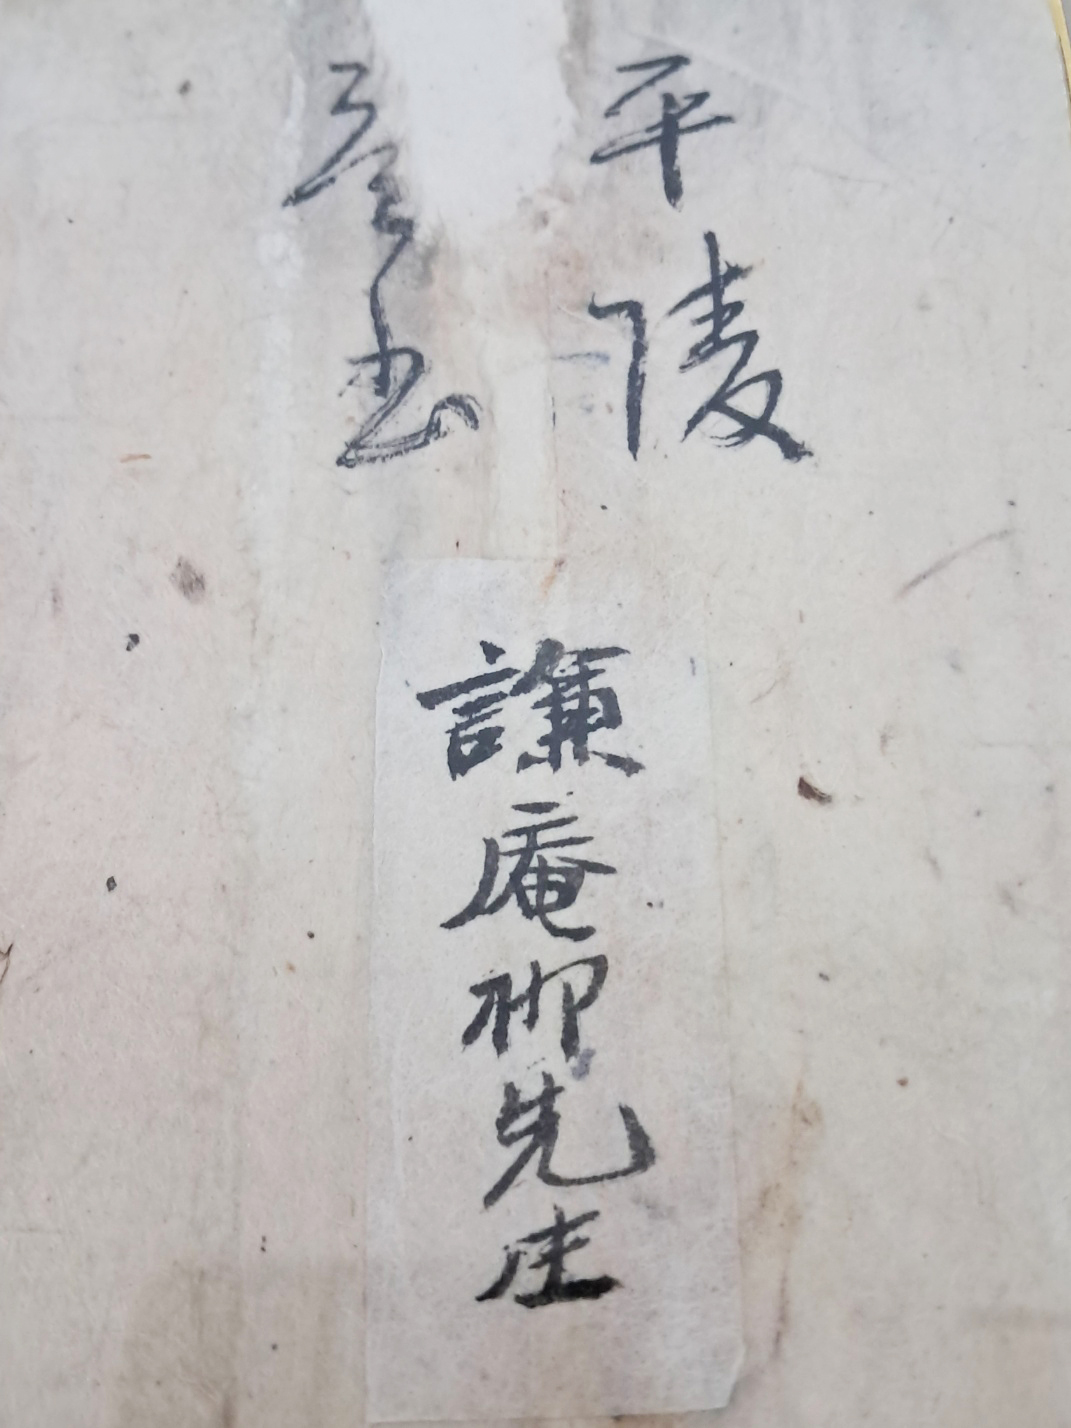 平陵
謙庵柳先生